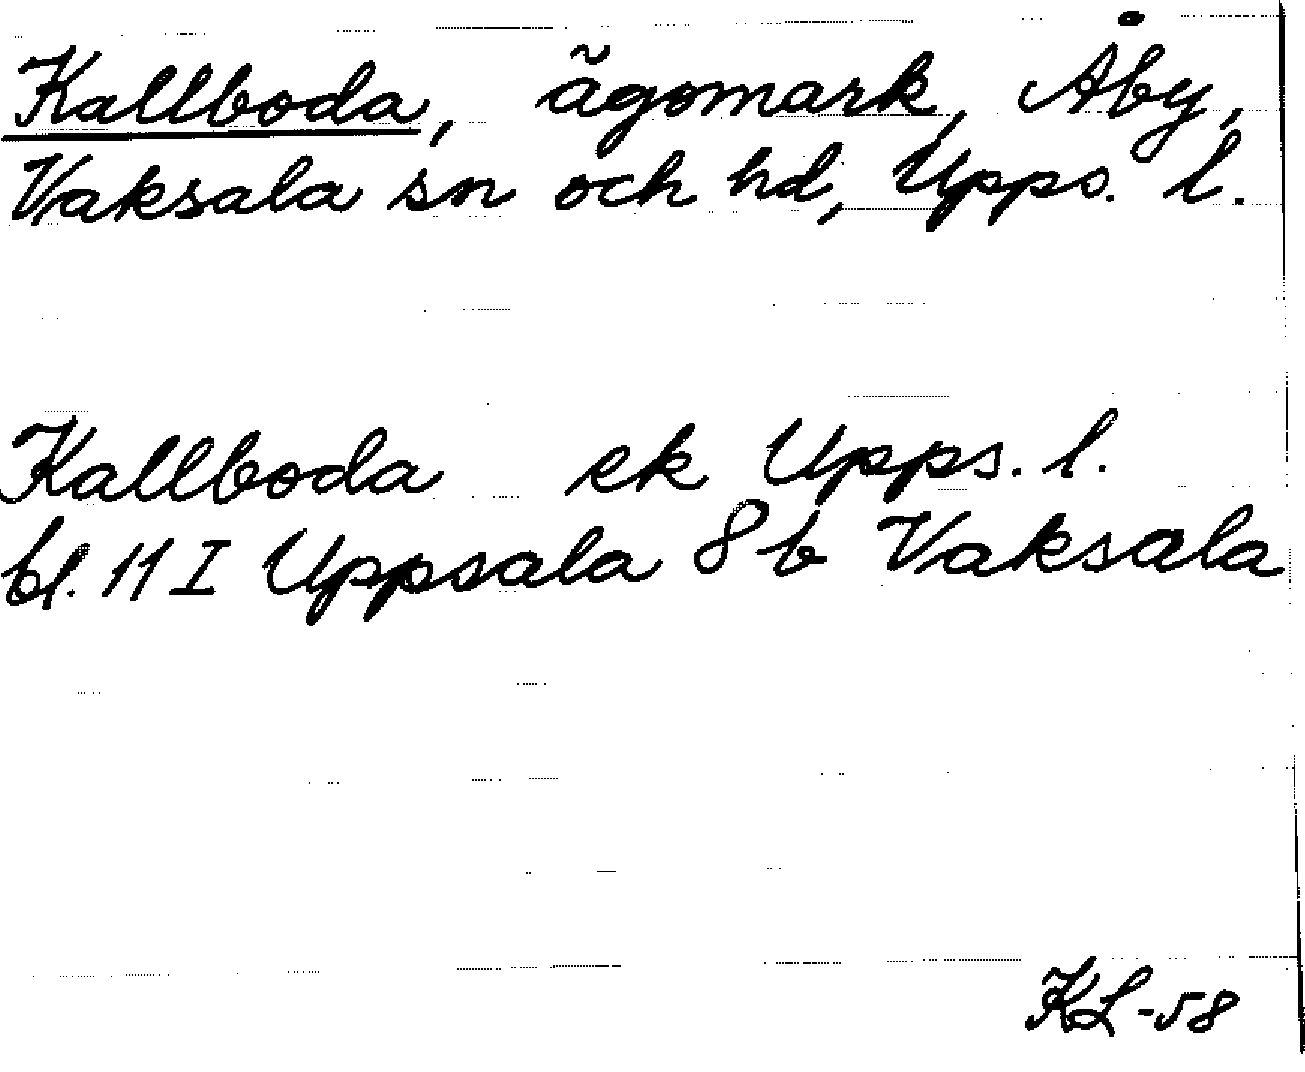 Kallboda, ägomark, Åby,
Vaksala sn och hd, Upps. l.
Kallboda ek Upps. l.
bl. 11 I Uppsala 8 b Vaksala
KL-58